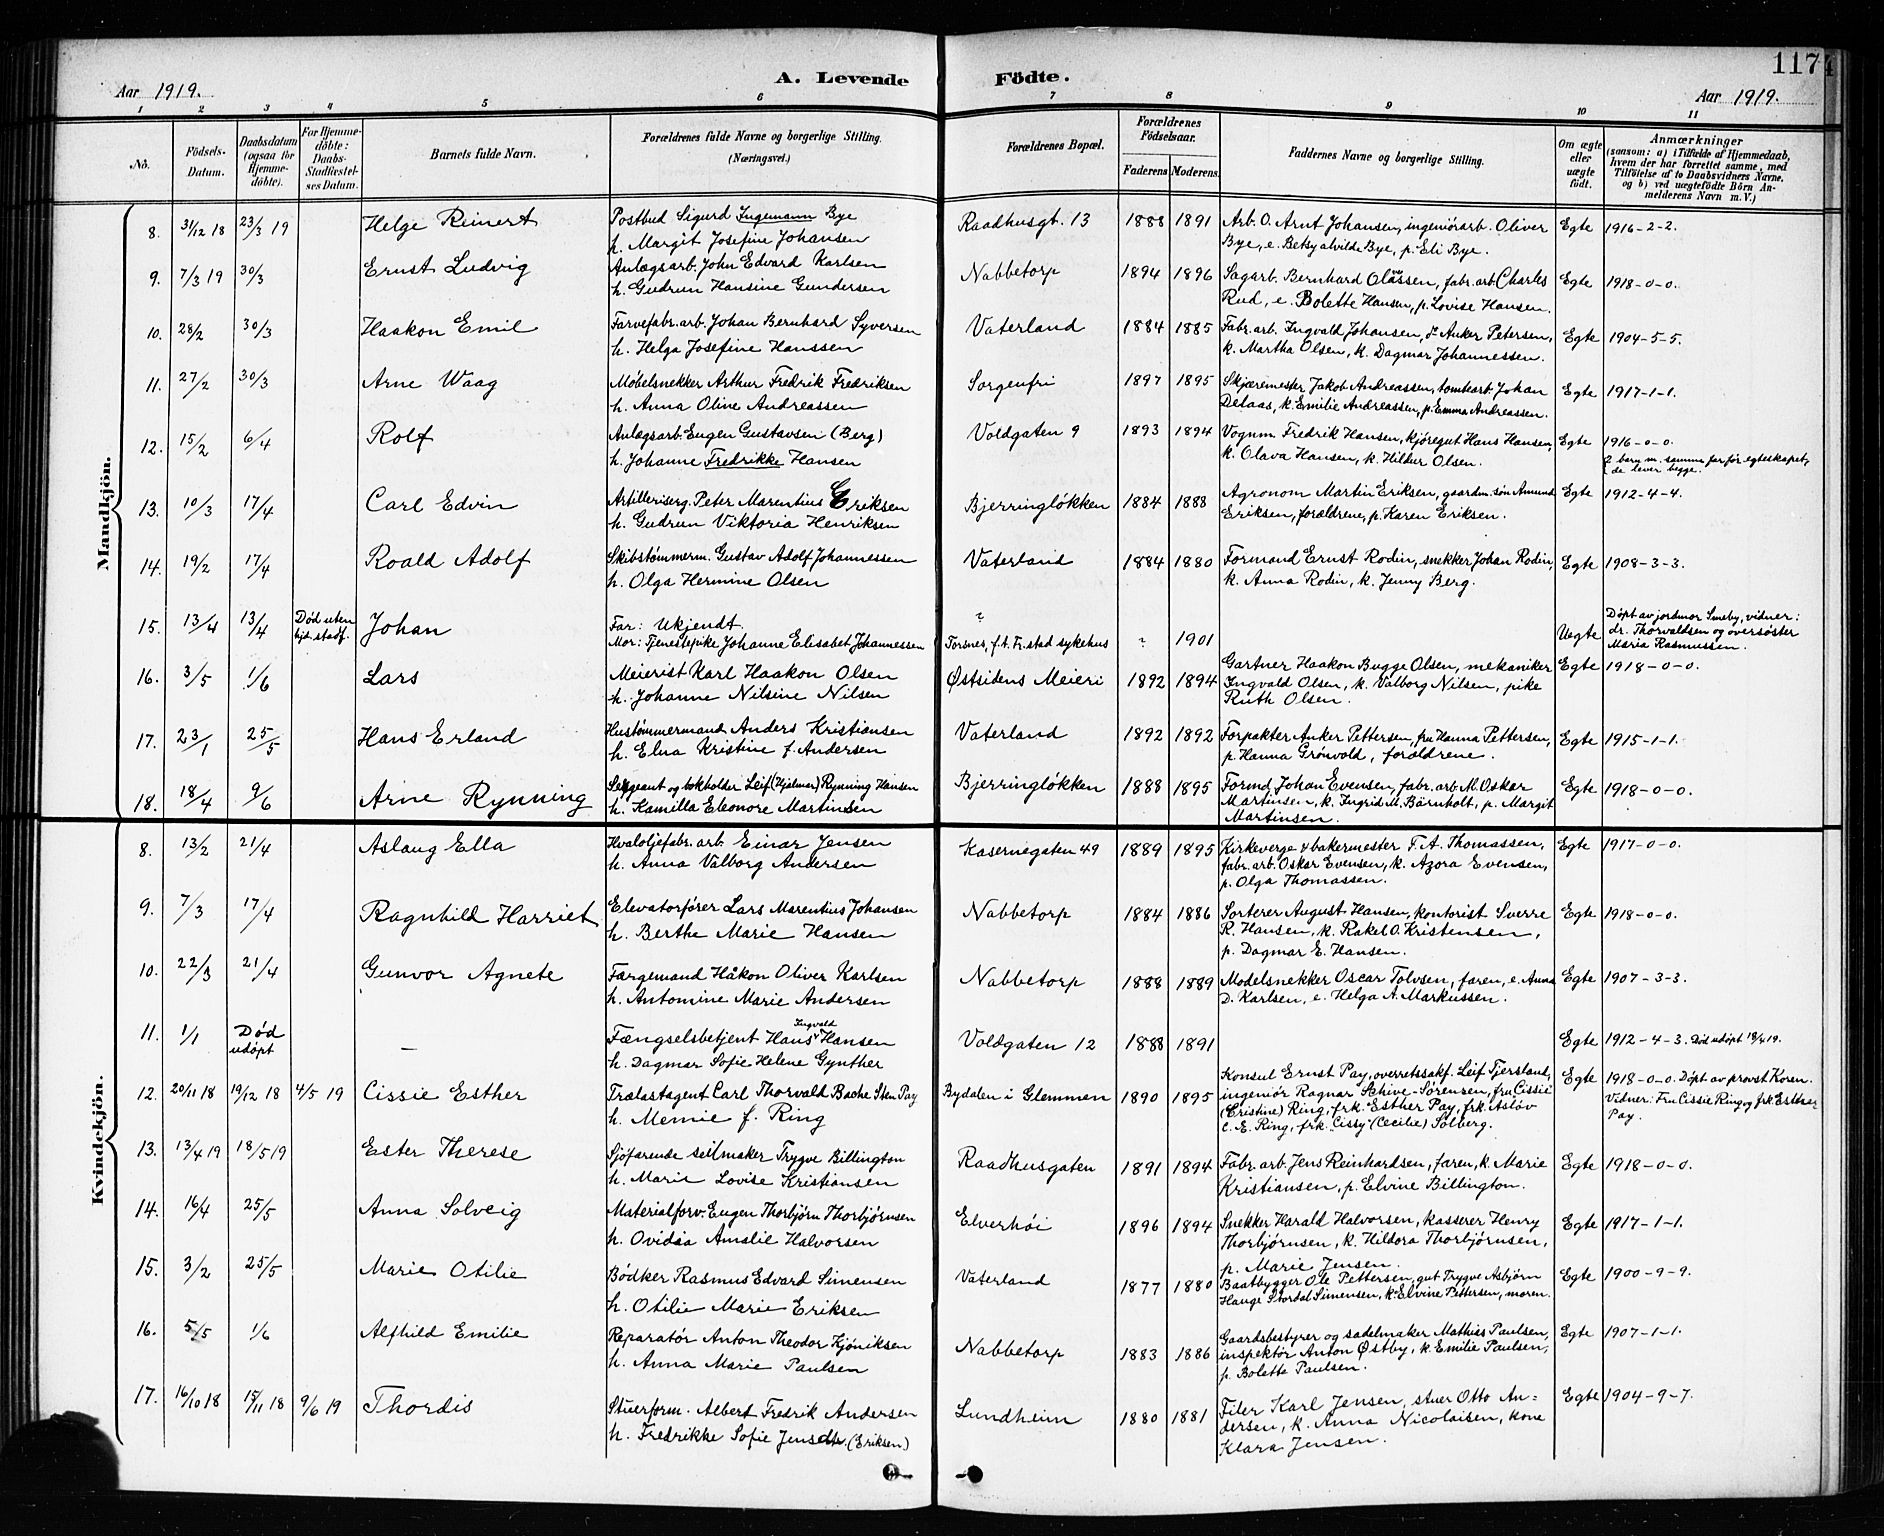 117
Aar 1919.
A. Levende Födte.
Aar 1919.
1 2 3 4 5 6 7 8 9 10 11
No.
Födsels-Datum.
Daabsdatum (ogsaa for Hjemme-döbte).
For Hjemme-döbte: Daabs-Stadfæstel-ses Datum.
Barnets fulde Navn.
Forældrenes fulde Navne og borgerlige Stilling. (Næringsvei.)
Forældrenes Bopæl.
Forældrenes Födselsaar.
Faderens Moderens.
Faddernes Navne og borgerlige Stilling.
Om ægte eller uægte födt.
Anmærkninger
(saasom: a) i Tilfælde af Hjemmedaab, hvem der har forrettet samme, med Tilföielse af to Daabsvidners Navne. og b) ved uægtefödte Börn An-melderens Navn m.V.)
Mandkjön.
8. 31/12 18 23/3 19 Helge Reinert
Postbud Sigurd Ingemann Bye
h. Margit Josefine Johansen
Raadhusgt. 13 1888 1891
Arb. O. Arnt Johansen, ingeniörarb. Oliver
Bye, e. Betsy Alvilde Bye, p. Eli Bye.
Egte 1916-2-2.
9. 7/3 19 30/3 Ernst Ludvig
Anlægsarb. John Edvard Karlsen
h. Gudrun Hansine Gundersen
Nabbetorp 1894 1896
Sagarb. Bernhard Olassen, fabr. arb. Charles
Rud, e. Bolette Hansen, p. Lovise Hansen.
Egte 1918-0-0.
10. 28/2 30/3 Haakon Emil
Farvefabr. arb. Johan Bernhard Syversen
h. Helga Josefine Hanssen
Vaterland 1884 1885
Fabr. arb. Ingvald Johansen, do Anker Petersen,
k. Martha Olsen, k. Dagmar Johannessen.
Egte 1904-5-5.
11. 27/2 30/3 Arne Waag
Møbelsnekker Arthur Fredrik Fredriksen
h. Anna Oline Andreassen
Sorgenfri 1897 1895
Skjæremester Jakob Andreassen, tomtearb. Johan
Delaas, k. Emilie Andreassen, p. Emma Andreassen.
Egte 1917-1-1.
12. 15/2 6/4 Rolf
Anlægsarb. Eugen Gustavsen (Berg)
h. Johanne Fredrikke Hansen
Voldgaten 9 1893 1894
Vognm. Fredrik Hansen, kjöregut Hans Hansen,
k. Olava Hansen, k. Hildur Olsen.
Egte 1916-0-0.
2 barn m. samme far för egteskapet,
de lever begge.
13. 10/3 17/4 Carl Edvin
Artilleriserg. Peter Marentius Eriksen
h. Gudrun Viktoria Henriksen
Bjerringløkken 1884 1888
Agronom Martin Eriksen, gaardm. søn Amund
Eriksen, forældrene, p. Karen Eriksen.
Egte 1912-4-4.
14. 19/2 17/4 Roald Adolf
Skibstømmerm. Gustav Adolf Johannessen
h. Olga Hermine Olsen
Vaterland 1884 1880
Formand Ernst Rodin, snekker Johan Rodin,
k. Anna Rodin, k. Jenny Berg.
Egte 1908-3-3.
15. 13/4 13/4 Død uten hjt. stadf. Johan
Far: Ukjendt.
Mor: Tjenestepike Johanne Elisabet Johannessen
?
Torsnes, f.t. Fr.stad sykehus ? 1901
Uegte
Døpt av jordmor Smeby, vidner:
dr. Thorvaldsen og oversøster
Maria Rasmussen.
16. 3/5 1/6 Lars
Meierist Karl Haakon Olsen
h. Johanne Nilsine Nilsen
Østsidens Meieri 1892 1894
Gartner Haakon Bugge Olsen, mekaniker
Ingvald Olsen, k. Valborg Nilsen, pike
Ruth Olsen.
Egte 1918-0-0.
17. 23/1 25/5 Hans Erland
Hustømmermand Anders Kristiansen
h. Elna Kristine f. Andersen
Vaterland 1892 1892
Forpakter Anker Pettersen, fru Hanna Pettersen,
p. Hanna Grönvold, forældrene.
Egte 1915-1-1.
18. 18/4 9/6 Arne Rynning
Sergeant og bokholder Leif (Hjelmar) Rynning Hansen
h. Kamilla Eleonore Martinsen
Bjerringløkken 1888 1895
Formd. Johan Evensen, fabr. arb. M. Oskar
Martinsen, k. Ingrid M. Bärnholt, p. Margit
Martinsen.
Egte 1918-0-0.
Kvindekjön.
8. 13/2 21/4 Aslaug Ella
Hvaloljefabr. arb. Einar Jensen
h. Anna Valborg Andersen
Kasernegaten 49 1889 1895
Kirkeverge & bakermester T. A. Thomassen,
fabr. arb. Oskar Evensen, k. Azora Evensen,
p. Olga Thomassen.
Egte 1917-0-0.
9. 7/3 17/4 Ragnhild Harriet
Elevatorfører Lars Marentius Johansen
h. Berthe Marie Hansen
Nabbetorp 1884 1886
Sorterer August Hansen, kontorist Sverre
R. Hansen, k. Rakel O. Kristensen,
p. Dagmar E. Hansen.
Egte 1918-0-0.
10. 22/3 21/4 Gunvor Agnete
Færgemand Håkon Oliver Karlsen
h. Antomine Marie Andersen
Nabbetorp 1888 1889
Modelsnekker Oscar Tolvsen, faren, e. Anna
D. Karlsen, e. Helga A. Markussen.
Egte 1907-3-3.
11. 1/1 Død udøpt —
Fængselsbetjent Hans Ingvald Hansen
h. Dagmar Sofie Helene Gynther
Voldgaten 12 1888 1891
Egte 1912-4-3. Död udøpt 18/4 19.
12. 20/11 18 19/12 18 4/5 19 Cissie Esther
Trælastagent Carl Thorvald Bache Sten Pay
h. Memie f. Ring
Bydalen i Glemmen 1890 1895
Konsul Ernst Pay, overretssakf. Leif Tjerstland,
ingeniør Ragnar Schive-Sørensen, fru Cissie
(Cristine) Ring, frk. Esther Pay, frk. Astöv
C. E. Ring, frk. Cissy (Cecilie) Solberg.
Egte 1918-0-0. Døpt av provst Koren.
Vidner: Fru Cissie Ring og frk. Esther
Pay.
13. 13/4 19 18/5 19 Ester Therese
Sjöfarende seilmaker Trygve Billington
h. Marie Lovise Kristiansen
Raadhusgaten 1891 1894
Fabr. arb. Jens Reinhardsen, faren, k. Marie
Kristiansen, p. Elvine Billington.
Egte 1918-0-0.
14. 16/4 25/5 Anna Solveig
Materialforv. Eugen Thorbjörn Thorbjörnsen
h. Ovidia Amalie Halvorsen
Elverhöi 1896 1894
Snekker Harald Halvorsen, kasserer Henry
Thorbjörnsen, k. Hildora Thorbjörnsen,
p. Marie Jensen.
Egte 1917-1-1.
15. 3/2 25/5 Marie Otilie
Bödker Rasmus Edvard Simensen
h. Otilie Marie Eriksen
Vaterland 1877 1880
Baatbygger Ole Pettersen, gut Trygve Asbjörn
Hauge Stordal Simensen, k. Elvine Pettersen, moren.
Egte 1900-9-9.
16. 5/5 1/6 Alfhild Emilie
Reparatör Anton Theodor Kjöniksen
h. Anna Marie Paulsen
Nabbetorp 1883 1886
Gaardsbestyrer og sadelmaker Mathias Paulsen,
inspektör Anton Østby, k. Emilie Paulsen,
p. Bolette Paulsen.
Egte 1907-1-1.
17. 16/10 18 15/11 18 9/6 19 Thordis
Stuerform. Albert Fredrik Andersen
h. Fredrikke Sofie Jensdtr. (Eriksen)
Lundheim 1880 1881
Filer Karl Jensen, stuer Otto An=
dersen, k. Anna Nicolaisen, kone
Klara Jensen.
Egte 1904-9-7.